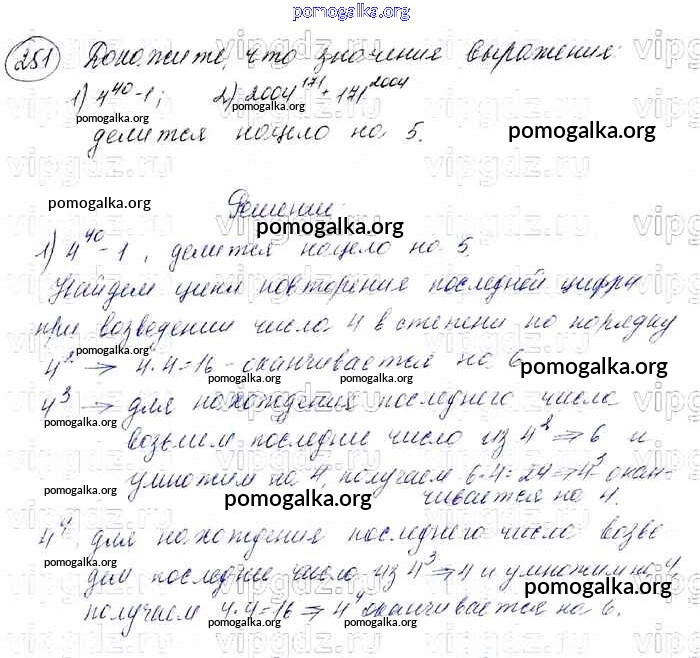 pomogalka.org
251 Докажите, что значения выражения:
1) 4⁴⁰-1; 2) 2004¹⁷¹+171²⁰⁰⁴
pomogalka.org pomogalka.org pomogalka.org
делится нацело на 5.
pomogalka.org Решение:
pomogalka.org
1) 4⁴⁰-1, делится нацело на 5.
Найдем цикл повторения последней цифры
при возведении числа 4 в степени по порядку
4² → 4·4=16 - оканчивается на 6
pomogalka.org pomogalka.org pomogalka.org pomogalka.org
4³ → для нахождения последнего числа
возьмем последние число из 4² ⇒ 6 и
умножим на 4, получаем 6·4=24 ⇒ 4³ окан-
чивается на 4.
pomogalka.org pomogalka.org pomogalka.org
4⁴ для нахождения последнего число возь
pomogalka.org pomogalka.org
последние число из 4³ ⇒ 4 и умножим на 4
pomogalka.org pomogalka.org
получаем 4·4=16 ⇒ 4⁴ оканчивается на 6.
pomogalka.org pomogalka.org